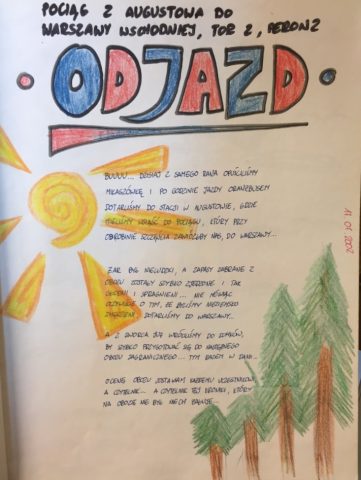 POCIĄG Z AUGUSTOWA DO
WARSZAWY WSCHODNIEJ, TOR 2, PERON 2
ODJAZD
BUUUU... DZISIAJ Z SAMEGO RANA OPUŚCILIŚMY
MIKASZÓWKĘ I PO GODZINIE JAZDY ORANŻBUSEM
DOTARLIŚMY DO STACJI W AUGUSTOWIE, GDZIE
MIELIŚMY WSIĄŚĆ DO POCIĄGU, KTÓRY PRZY
ODROBINIE SZCZĘŚCIA ZAWIÓZŁBY NAS, DO WARSZAWY...
ŻAR BYŁ NIELUDZKI, A ZAPASY ZABRANE Z
OBOZU ZOSTAŁY SZYBKO ZJEDZONE I TAK
GŁODNI I SPRAGNIENI... NIE MÓWIĄC
OCZYWIŚCIE O TYM, ŻE BYLIŚMY
ZMĘCZENI, DOTARLIŚMY DO WARSZAWY...
A Z DWORCA JUŻ WRÓCILIŚMY DO DOMÓW,
BY SZYBKO PRZYGOTOWAĆ SIĘ DO NASTĘPNEGO
OBOZU ZAGRANICZNEGO... TYM RAZEM W DANII...
OCENĘ OBOZU ZOSTAWIAM KAŻDEMU UCZESTNIKOWI,
A CZYTELNIK... A CZYTELNIK TEJ KRONIKI, KTÓRY
NA OBOZIE NIE BYŁ NIECH ŻAŁUJE...